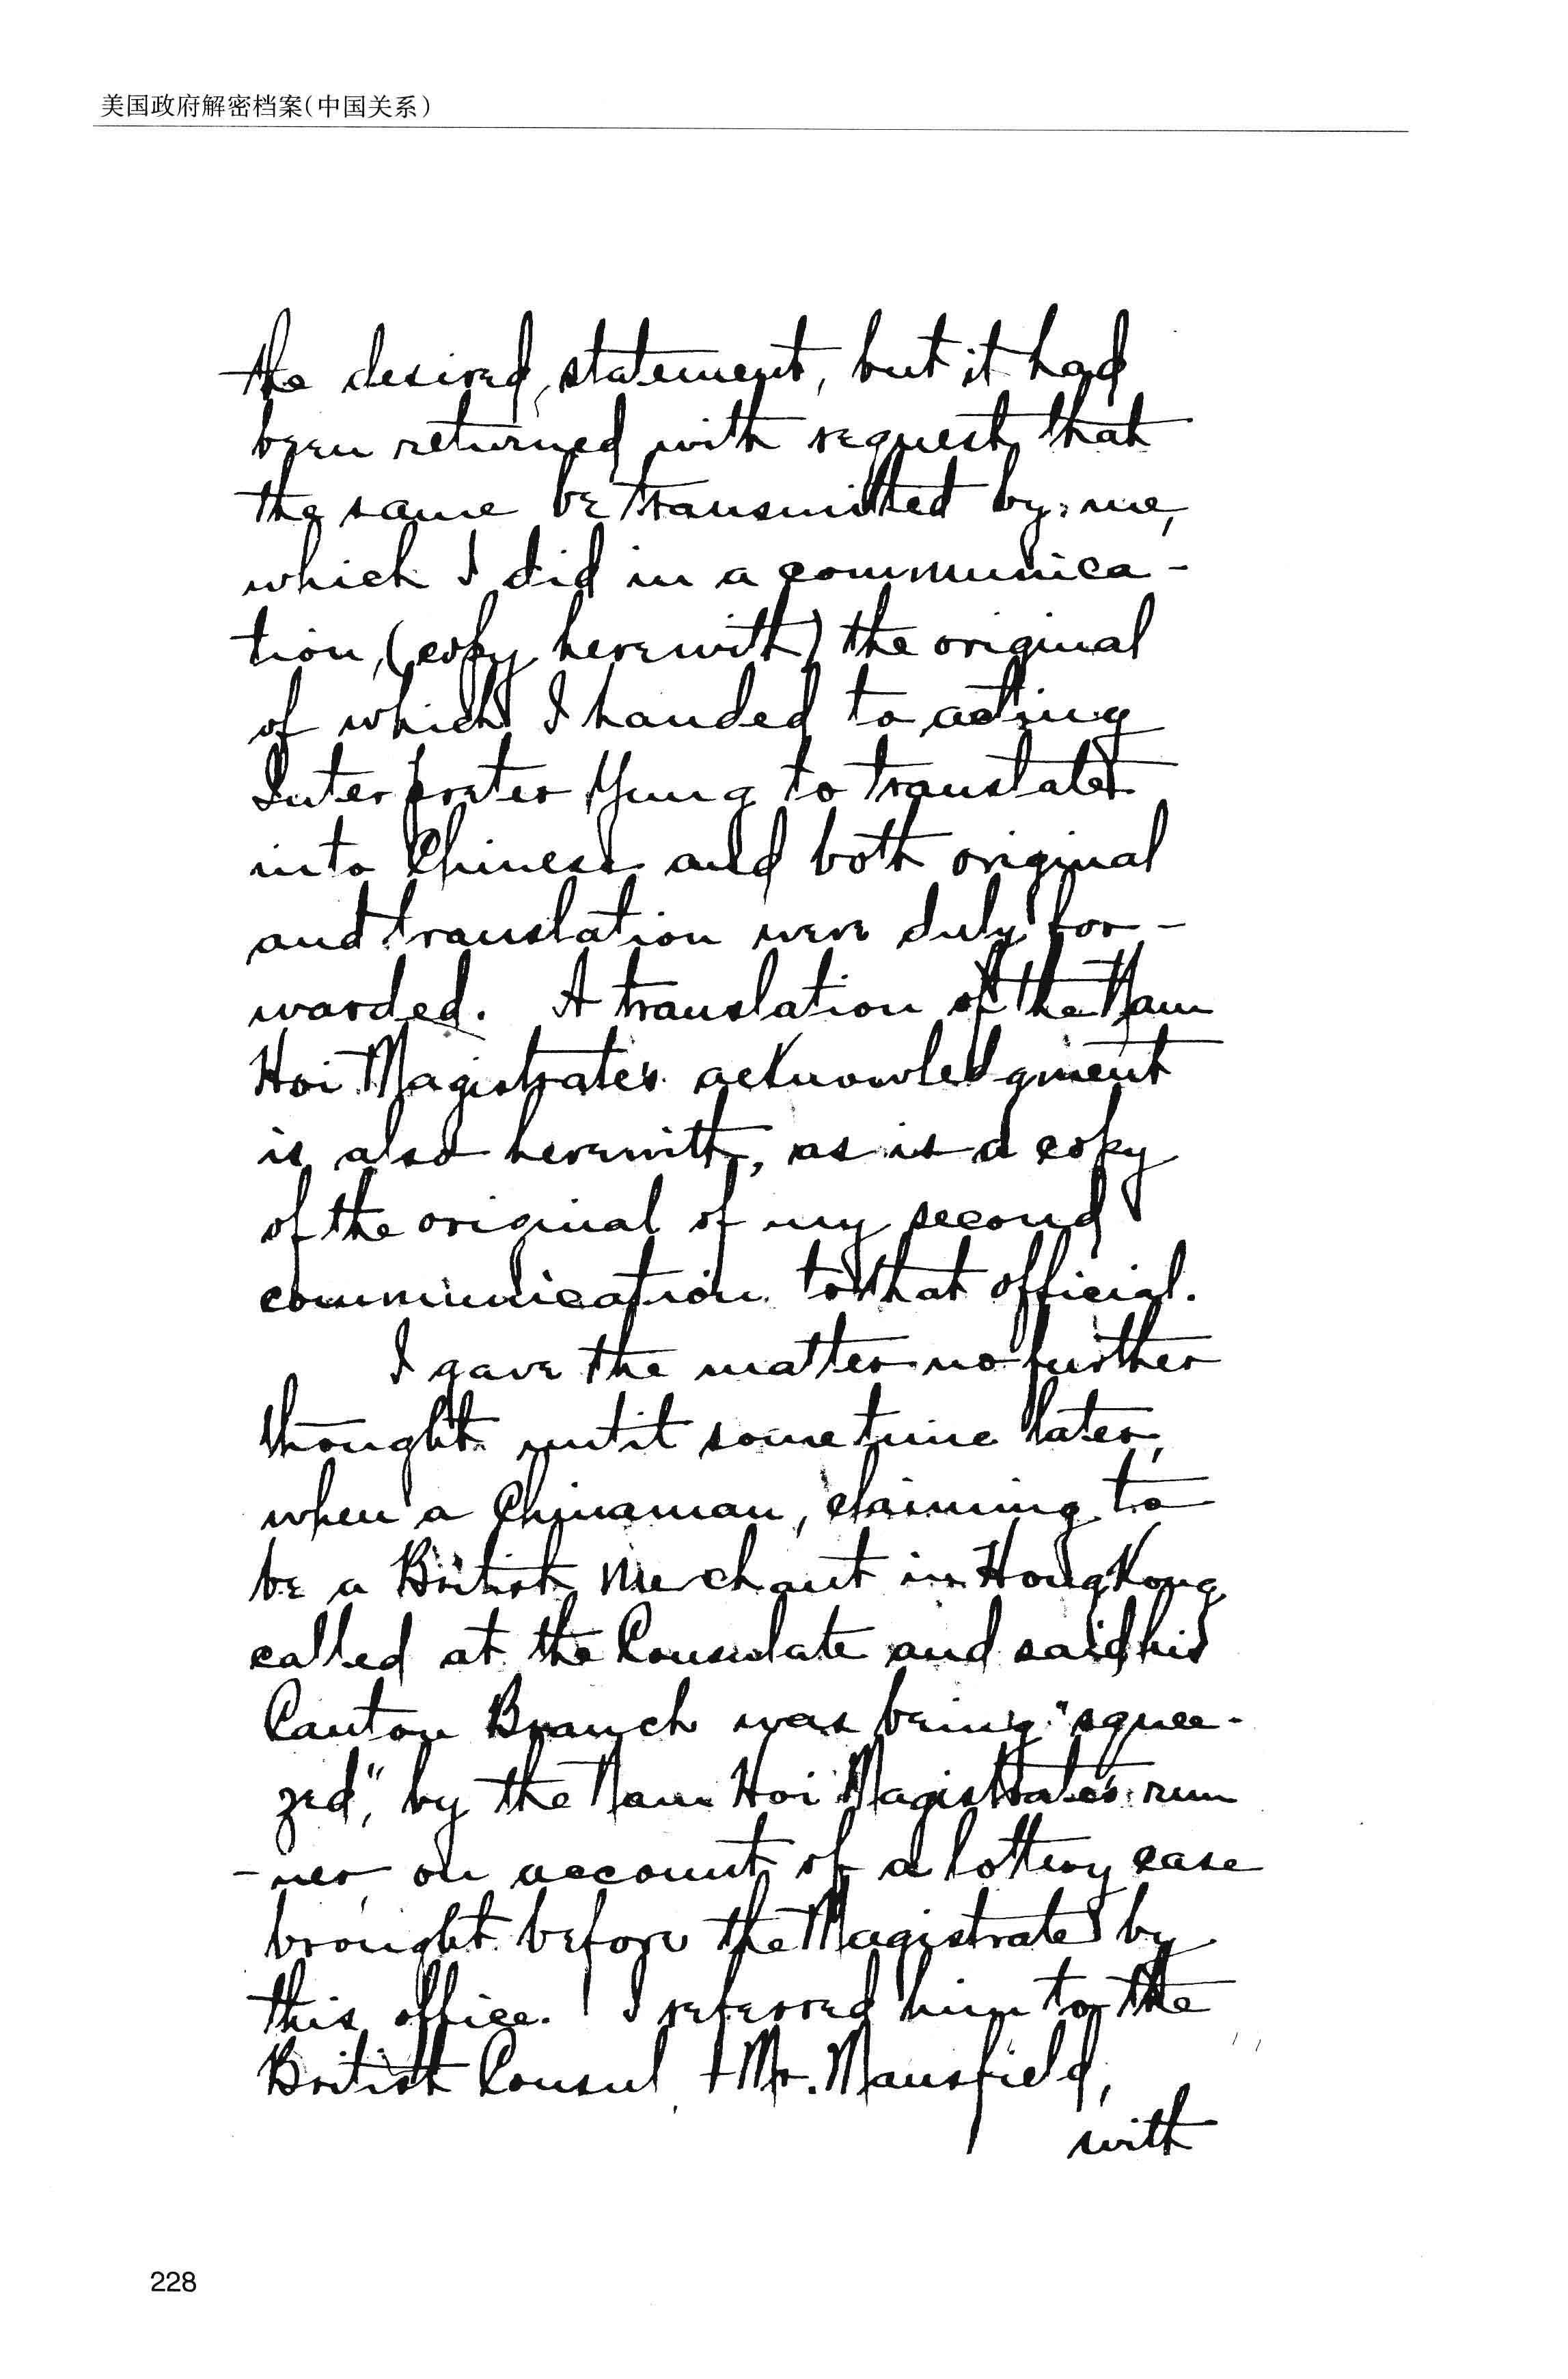 美国政府解密档案(中国关系)
the desired statement, but it had
been returned with request that
the same be transmitted by me,
which I did in a communica-
tion, (copy herewith) the original
of which I handed to acting
Interpreter Yung to translate
into Chinese and both original
and translation were duly for-
warded. A translation of the Nam
Hoi Magistrate's acknowledgment
is also herewith, as is a copy
of the original of my second
communication to that official.
I gave the matter no further
thought until some time later,
when a Chinaman, claiming to
be a British merchant in Hong Kong
called at the Consulate and said his
Canton Branch was being "squee-
zed", by the Nam Hoi Magistrate's run
-ner, on account of a lottery case
brought before the Magistrate by
this office. I referred him to the
British Consul, Mr. Mansfield,
with
228